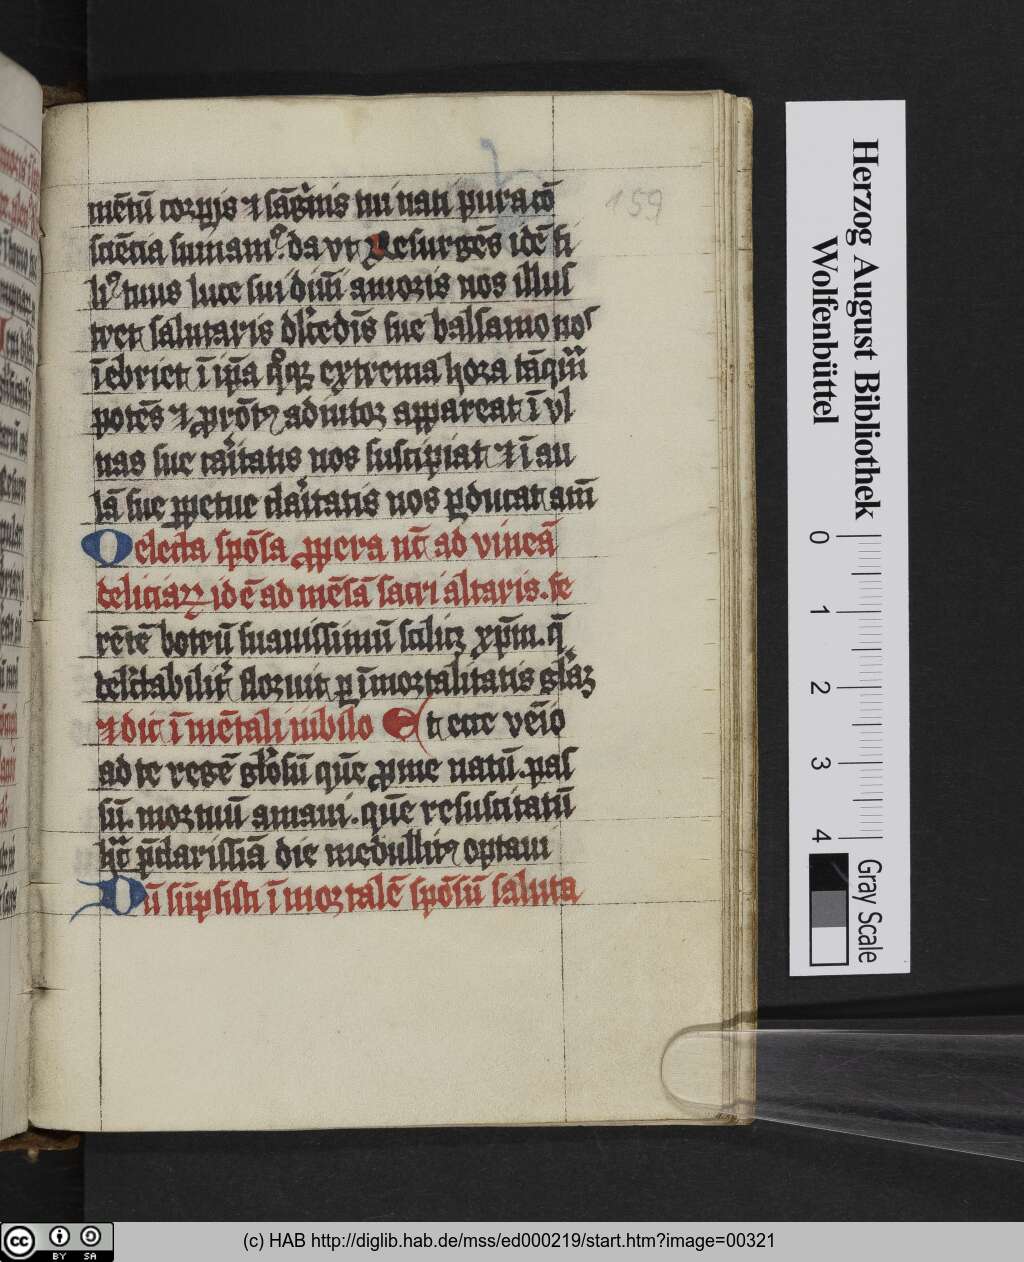 mētū corpꝫis ⁊ sāgͥnis tui nati pura cō
sciēcia sumamꝰ. da vt Resurgēs idē fi
liꝰ tuus luce sui diuī amoris nos illus
tret salutaris dulcedīs sue balsamo nos
īebriet ī ipā qꝫ extrema hora tāqm̄
potēs ⁊ ꝓ adiutor appareat ī vl
nas sue caͥtatis nos suscipiat ⁊ ī au
lā sue ꝑpetue claͥtatis nos ꝑducat am̄
O electa spōsa ꝓpera nc̄ ad vineā
deliciaꝝ id ē ad mēsā sacri altaris. fe
rētē botrū suauissimū scilicꝫ xpm̄. q̄
delctabilitͬ floruit ꝑ īmortalitatis
⁊ dic ī mētali iubilo Et ecce venio
ad te regē glosū quē ꝓ me natū. pas
sū. mortuū amaui. quē resuscitatū
hac p̄clarissīa die medullitꝰ optaui
Dū sūpsisti īmortalē spōsū saluta
159
Herzog August Bibliothek
Wolfenbüttel
0 1 2 3 4
Gray Scale
cc BY SA
(c) HAB http://diglib.hab.de/mss/ed000219/start.htm?image=00321